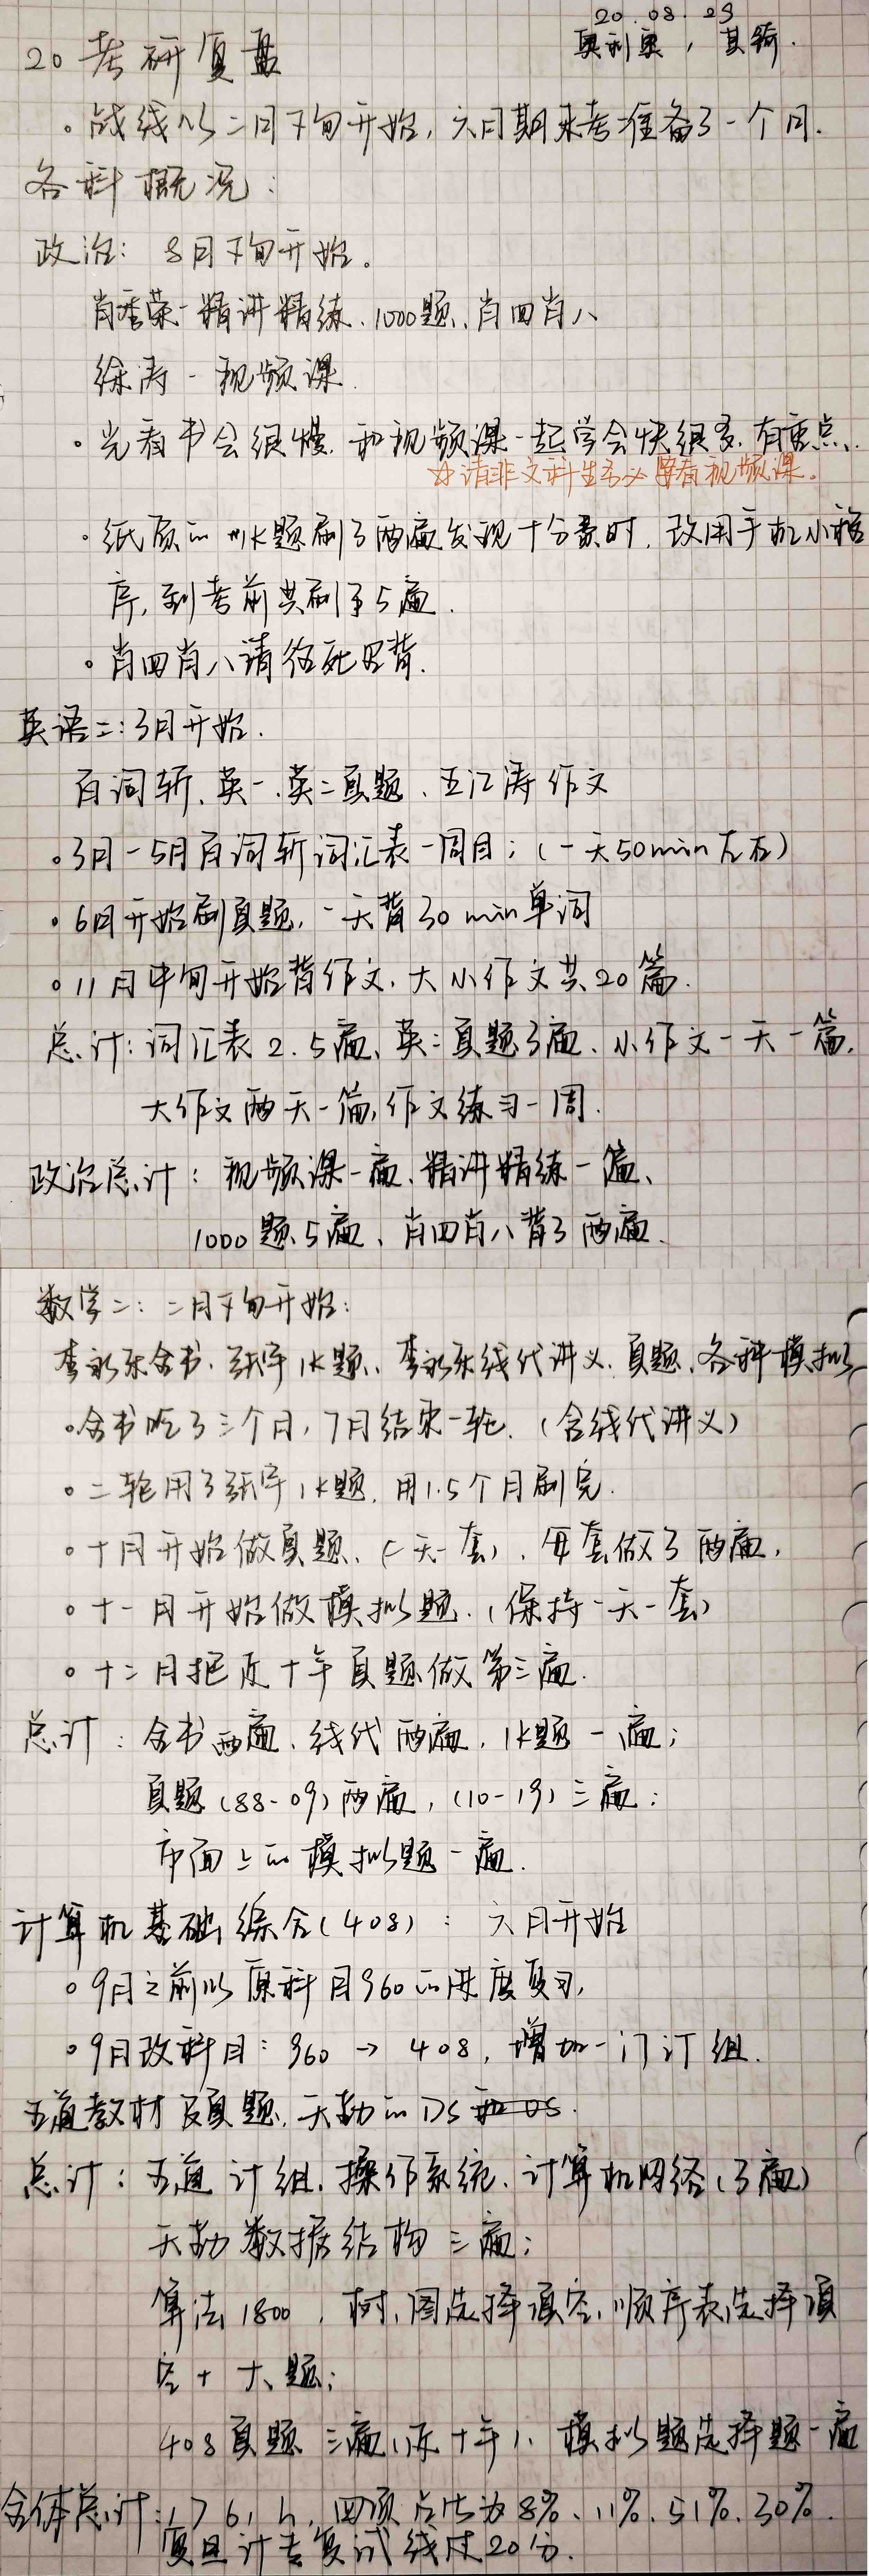 20.08.29
20考研复盘
奥利奥,其锜.
。战线从二月下旬开始,六月期末考准备了一个月.
各科概况:
政治: 8月下旬开始。
肖秀荣-精讲精练、1000题、肖四肖八
徐涛-视频课.
·光看书会很慢.和视频课一起学会快很多.有重点.
☆请非文科生务必要看视频课。
·纸质的1k题刷了两遍发现十分累时,改用手机小程
序,到考前共刷了5遍.
。肖四肖八请往死里背.
英语二:3月开始.
百词斩、英一、英二真题、王江涛作文
。3月-5月百词斩词汇表一周目;(一天50min左右)
。6月开始刷真题,一天背30min单词
。11月中旬开始背作文,大小作文共20篇.
总计:词汇表2.5遍、英二真题3遍、小作文一天一篇,
大作文两天一篇,作文练习一周.
政治总计:视频课一遍、精讲精练一遍、
1000题5遍、肖四肖八背了两遍.
数学二:二月下旬开始:
李永乐全书、张宇1k题、李永乐线代讲义、真题、各种模拟
。全书吃了三个月,7月结束一轮.(含线代讲义)
。二轮用了张宇1k题,用1.5个月刷完.
。十月开始做真题、(一天一套),每套做了两遍,
。十一月开始做模拟题.(保持一天一套)
。十二月把近十年真题做第三遍.
总计:全书两遍、线代两遍,1k题一遍;
真题(88-09)两遍,(10-19)三遍;
市面上的模拟题一遍.
计算机基础综合(408):六月开始
。9月之前以原科目960的进度复习,
。9月改科目:960→408,增加一门计组.
王道教材及真题,天勤的DS和OS.
总计:王道计组、操作系统、计算机网络(3遍)
天勤数据结构三遍;
算法1800,树、图选择填空、顺序表选择填
空+大题;
408真题三遍(近十年)、模拟题选择题一遍
全体总计:1761h,四项占比为8%、11%、51%、30%.
复旦计专复试线过20分.